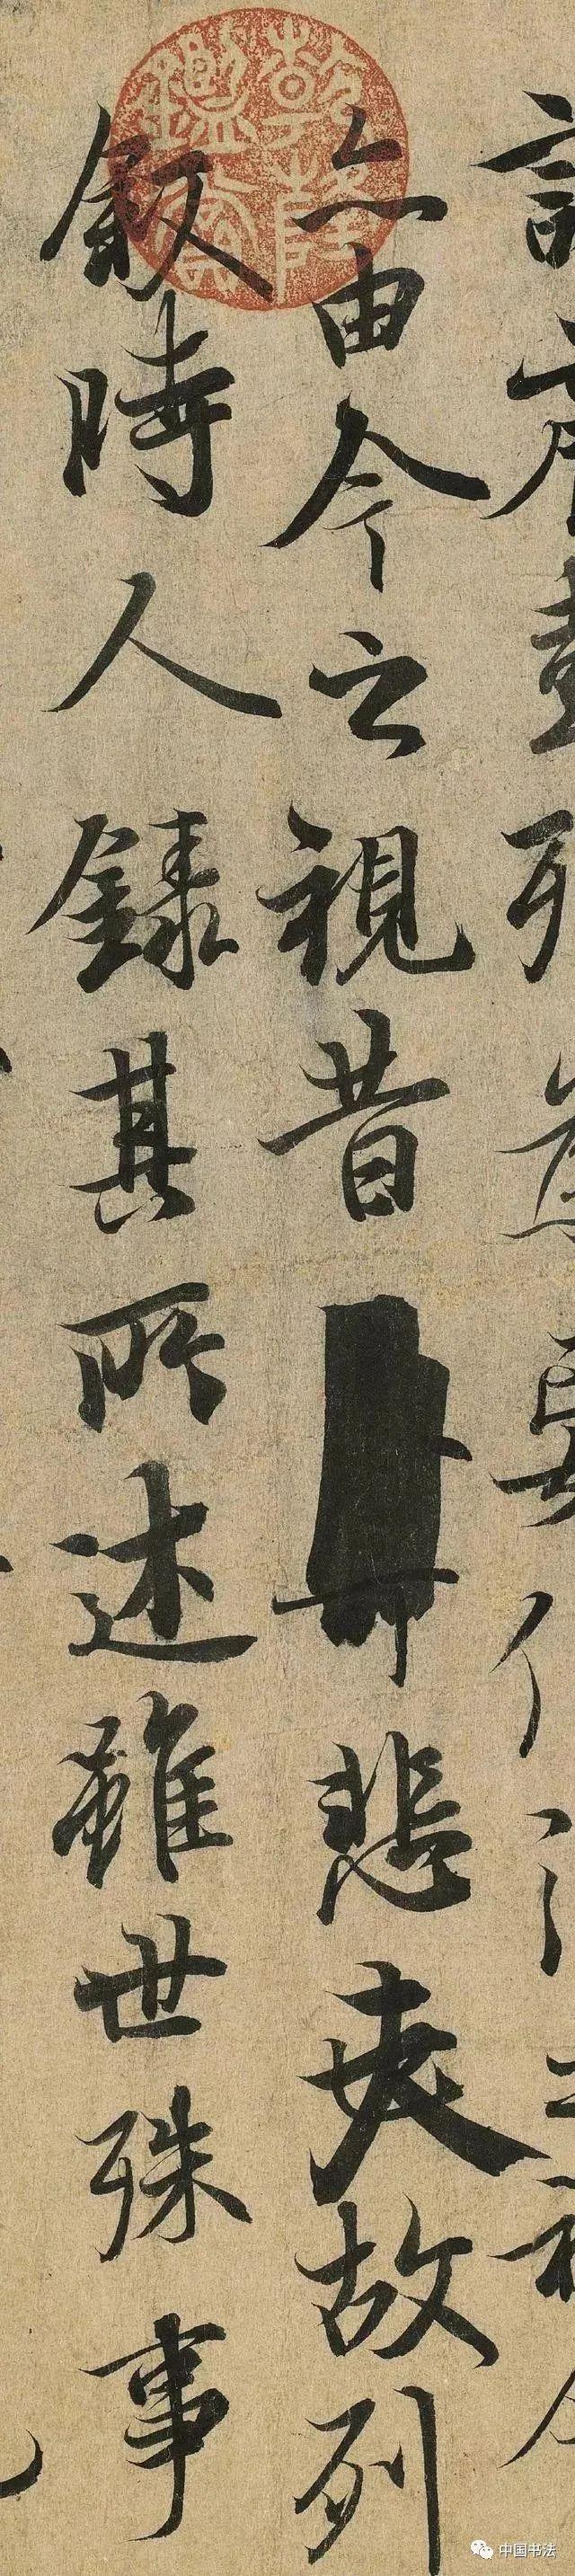 乾隆
鑑賞
亦由今之視昔悲夫故列
敘時人錄其所述雖世殊事
中国书法